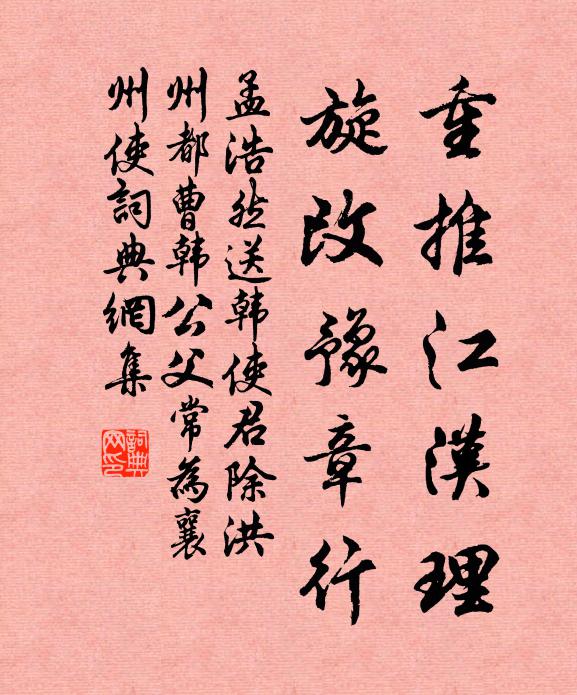 重推江漢理
旋改豫章行
孟浩然送韓使君除洪
州都曹韓公父常為襄
州使詞典網集
詞典
网印